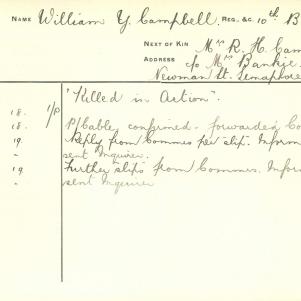 NAME William Y. Campbell. REG. &C. 10th B
NEXT OF KIN Mrs R. H. Cam
ADDRESS c/o Mrs Bankie.
Newman St. Semaphore
"Killed in Action".
18. 1/P P/Cable, confirmed. forwarded Co
19. Reply from Commes per slip. Inform
" sent Inquirer.
19 Further slips from Commes. Infor
" sent Inquirer